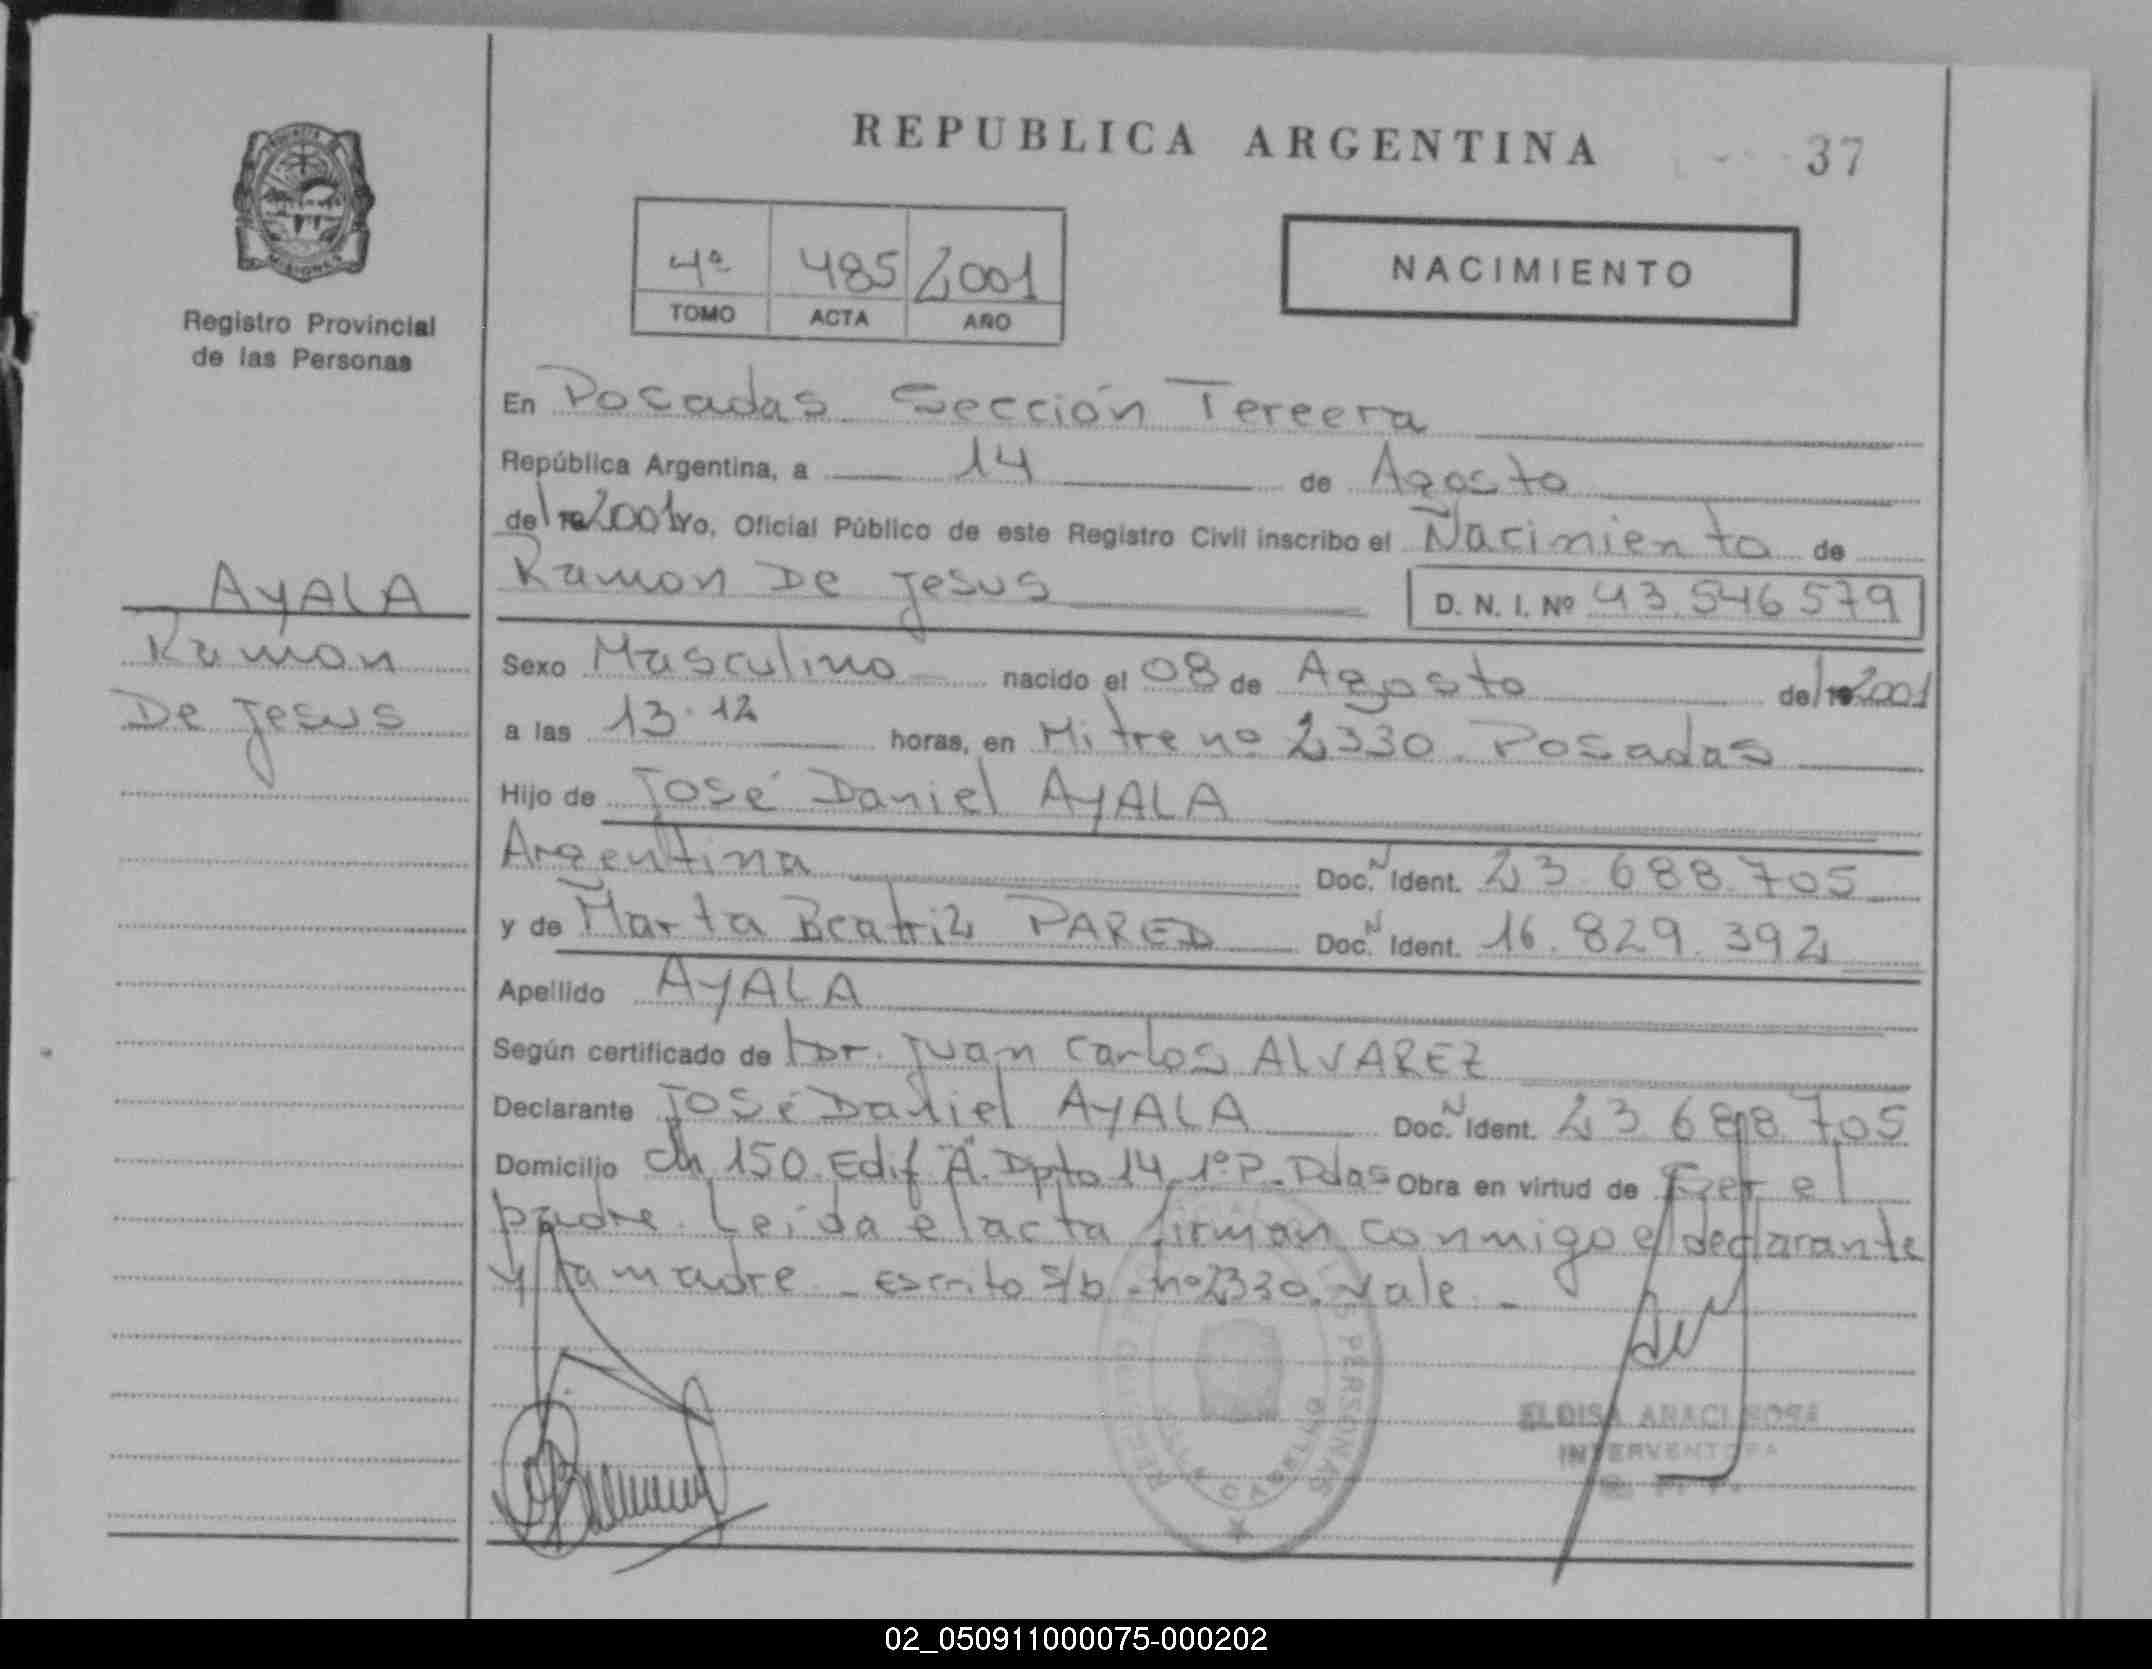 REPUBLICA ARGENTINA
37
4ª 485 2001
TOMO ACTA AÑO
NACIMIENTO
MISIONES
Registro Provincial
de las Personas
AYALA
Ramon
De Jesus
En Posadas Sección Tercera
República Argentina, a 14 de Agosto
del 2001 Yo, Oficial Público de este Registro Civil inscribo el Nacimiento de
Ramon De Jesus D. N. I. Nº 43.546.579
Sexo Masculino nacido el 08 de Agosto del 2001
a las 13.12 horas, en Mitre nº 2330. Posadas
Hijo de José Daniel AYALA
Argentina Doc. N Ident. 23.688.705
y de Marta Beatriz PARED Doc. N Ident. 16.829.392
Apellido AYALA
Según certificado de Dr. Juan Carlos ALVAREZ
Declarante José Daniel AYALA Doc. N Ident. 23.688.705
Domicilio ch 150. Edif "A". Dpto 14. 1º P. Pdas Obra en virtud de ser el
padre. Leida el acta firman conmigo el declarante
y la madre - Escrito s/b - nº 2330. Vale -
ELOISA ARACI ROSA
INTERVENTORA
02_050911000075-000202